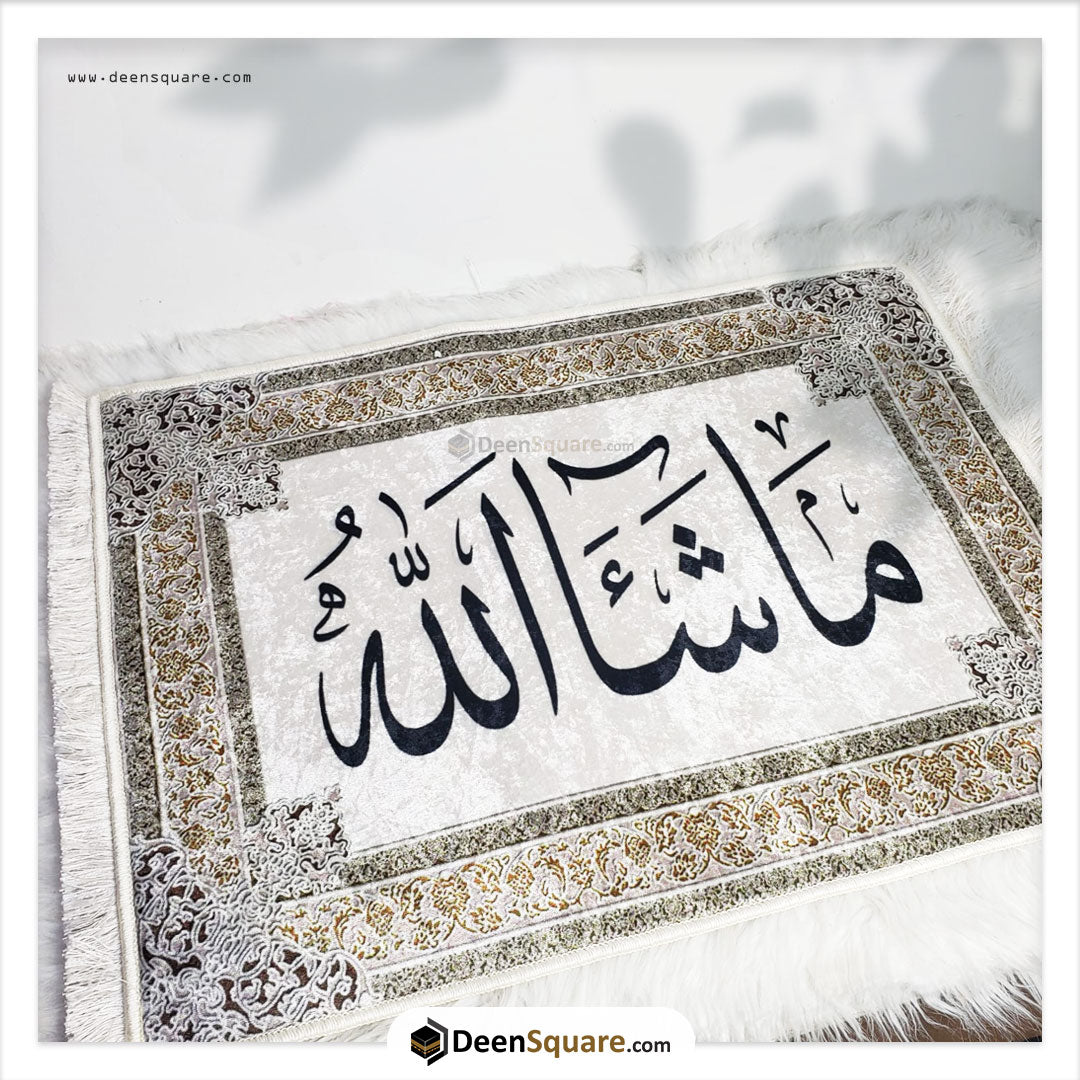 www.deensquare.com
DeenSquare.com
مَا شَآءَ اللّٰهُ
DeenSquare.com